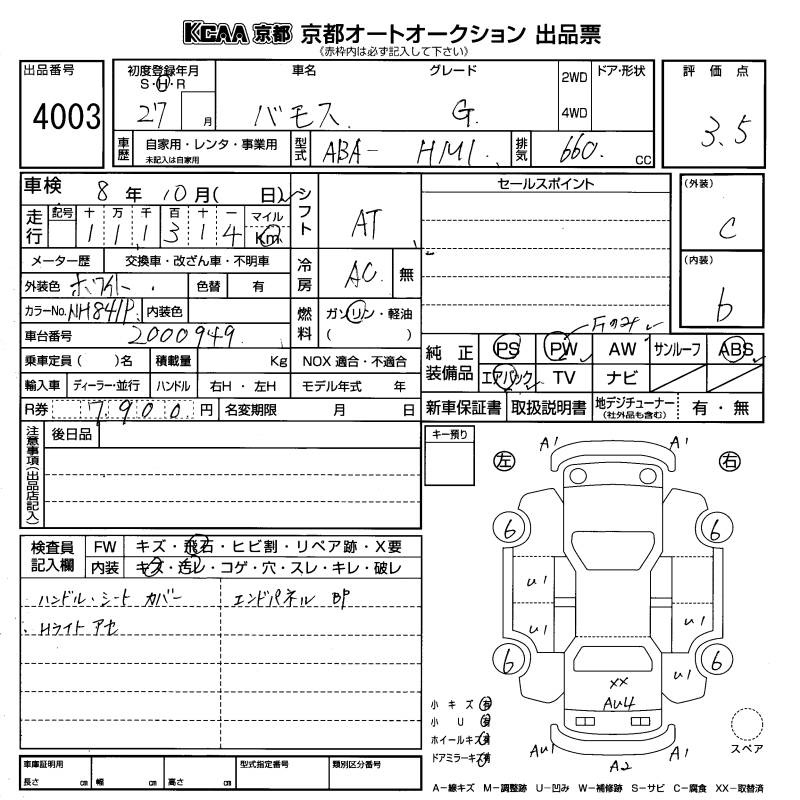 KCAA 京都 京都オートオークション 出品票
《赤枠内は必ず記入して下さい》
出品番号 4003
初度登録年月 S・H・R 27 月
車名 バモス
グレード G.
2WD 4WD
ドア・形状
評価点 3.5
車歴 自家用・レンタ・事業用 未記入は自家用
型式 ABA- HM1.
排気 660. CC
車検 8 年 10 月( 日)
シフト AT
セールスポイント
(外装) C
(内装) b
走行 記号 十 万 千 百 十 一 マイル Km
1 1 1 3 1 4
メーター歴 交換車・改ざん車・不明車
冷房 AC 無
外装色 ホワイト 色替 有
カラーNo. NH841P 内装色
燃料 ガソリン・軽油 ( )
車台番号 2000949
純正装備品 PS PW AW サンルーフ ABS
エアバック TV ナビ
乗車定員 ( )名 積載量 Kg NOX 適合・不適合
輸入車 ディーラー・並行 ハンドル 右H・左H モデル年式 年
新車保証書 取扱説明書 地デジチューナー (社外品も含む) 有・無
R券 7900 円 名変期限 月 日
注意事項(出品店記入) 後日品
キー預り
左 右
A1 A1
6 6
U1
U1 U1
6 U1 6
XX
AU4
AU1 A2 A1
検査員記入欄 FW キズ・飛石・ヒビ割・リペア跡・X要
内装 キズ・汚レ・コゲ・穴・スレ・キレ・破レ
ハンドル・シート カバー エンドパネル BP
Hライト アセ
小キズ 有
小U 有
ホイールキズ 有
ドアミラーキズ 有
スペア
車庫証明用 長さ cm 幅 cm 高さ cm 型式指定番号 類別区分番号
A−線キズ M−調整跡 U−凹み W−補修跡 S−サビ C−腐食 XX−取替済